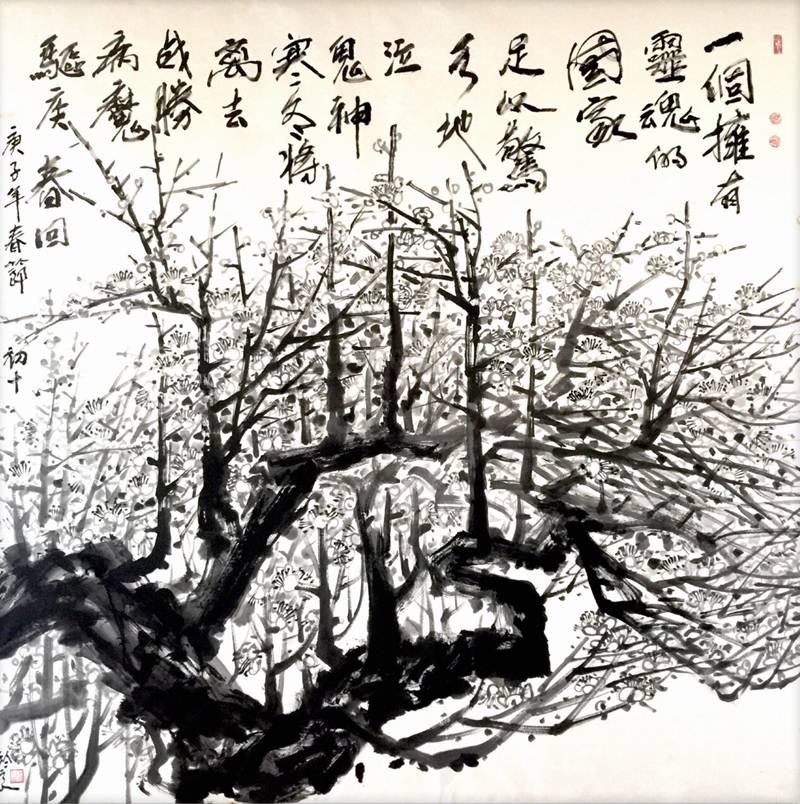 一個擁有
靈魂的
國家
足以驚
天地
泣
鬼神
寒冬將
離去
战勝
病魔
驅疫 春回
庚子年春節 初十